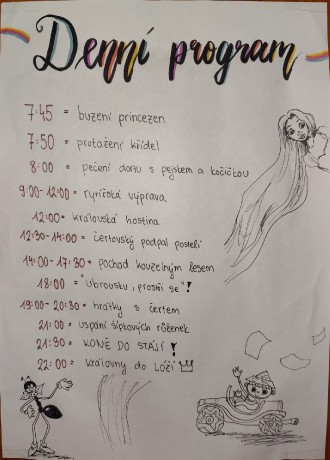 Denní program
7:45 = buzení princezen
7:50 = protažení křídel
8:00 = pečení dortu s pejskem a kočičkou
9:00-12:00 = rytířská výprava
12:00 = královská hostina
12:30-14:00 = čertovský podpal postelí
14:00-17:30 = pochod kouzelným lesem
18:00 = "Ubrousku, prostři se"!
19:00-20:30 = hrátky s čertem
21:00 = uspání šípkových růženek
21:30 = KONĚ DO STÁJÍ!
22:00 = královny do LÓŽÍ